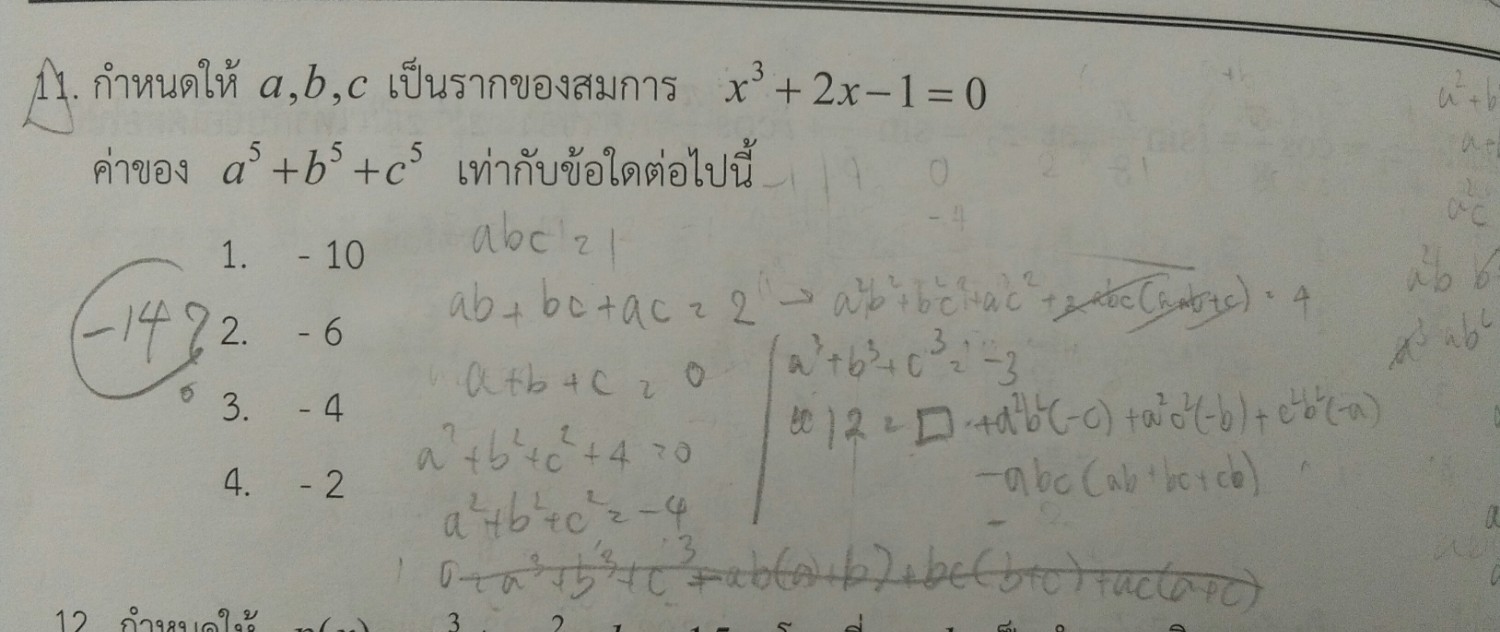 11. กำหนดให้ a,b,c เป็นรากของสมการ x³ + 2x − 1 = 0
ค่าของ a⁵ + b⁵ + c⁵ เท่ากับข้อใดต่อไปนี้
1. - 10
2. - 6
3. - 4
4. - 2
-14?
abc = 1
ab + bc + ac = 2 → a²b² + b²c² + a²c² + 2abc(a+b+c) = 4
a + b + c = 0
a² + b² + c² + 4 = 0
a² + b² + c² = -4
a³ + b³ + c³ = -3
12 = □ + a²b²(-c) + a²c²(-b) + c²b²(-a)
-abc(ab + bc + cb)
0 = a³ + b³ + c³ + ab(a+b) + bc(b+c) + ac(a+c)
12. กำหนดให้